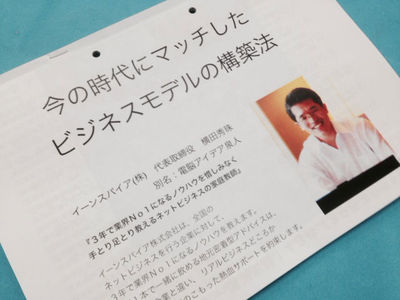 今の時代にマッチした
ビジネスモデルの構築法
イーンスパイア(株)　代表取締役　横田秀珠
別名：電脳アイデア泉人
『３年で業界Ｎｏ１になるノウハウを惜しみなく
手とり足とり教えるネットビジネスの家庭教師』
イーンスパイア株式会社は、全国の
ネットビジネスを行う企業に対して、
３年で業界Ｎｏ１になるノウハウを教えます。
1本で一緒に飲める地元密着型アドバイスは、
企業と違い、リアルビジネスどころか
のこもった熱血サポートを約束します。